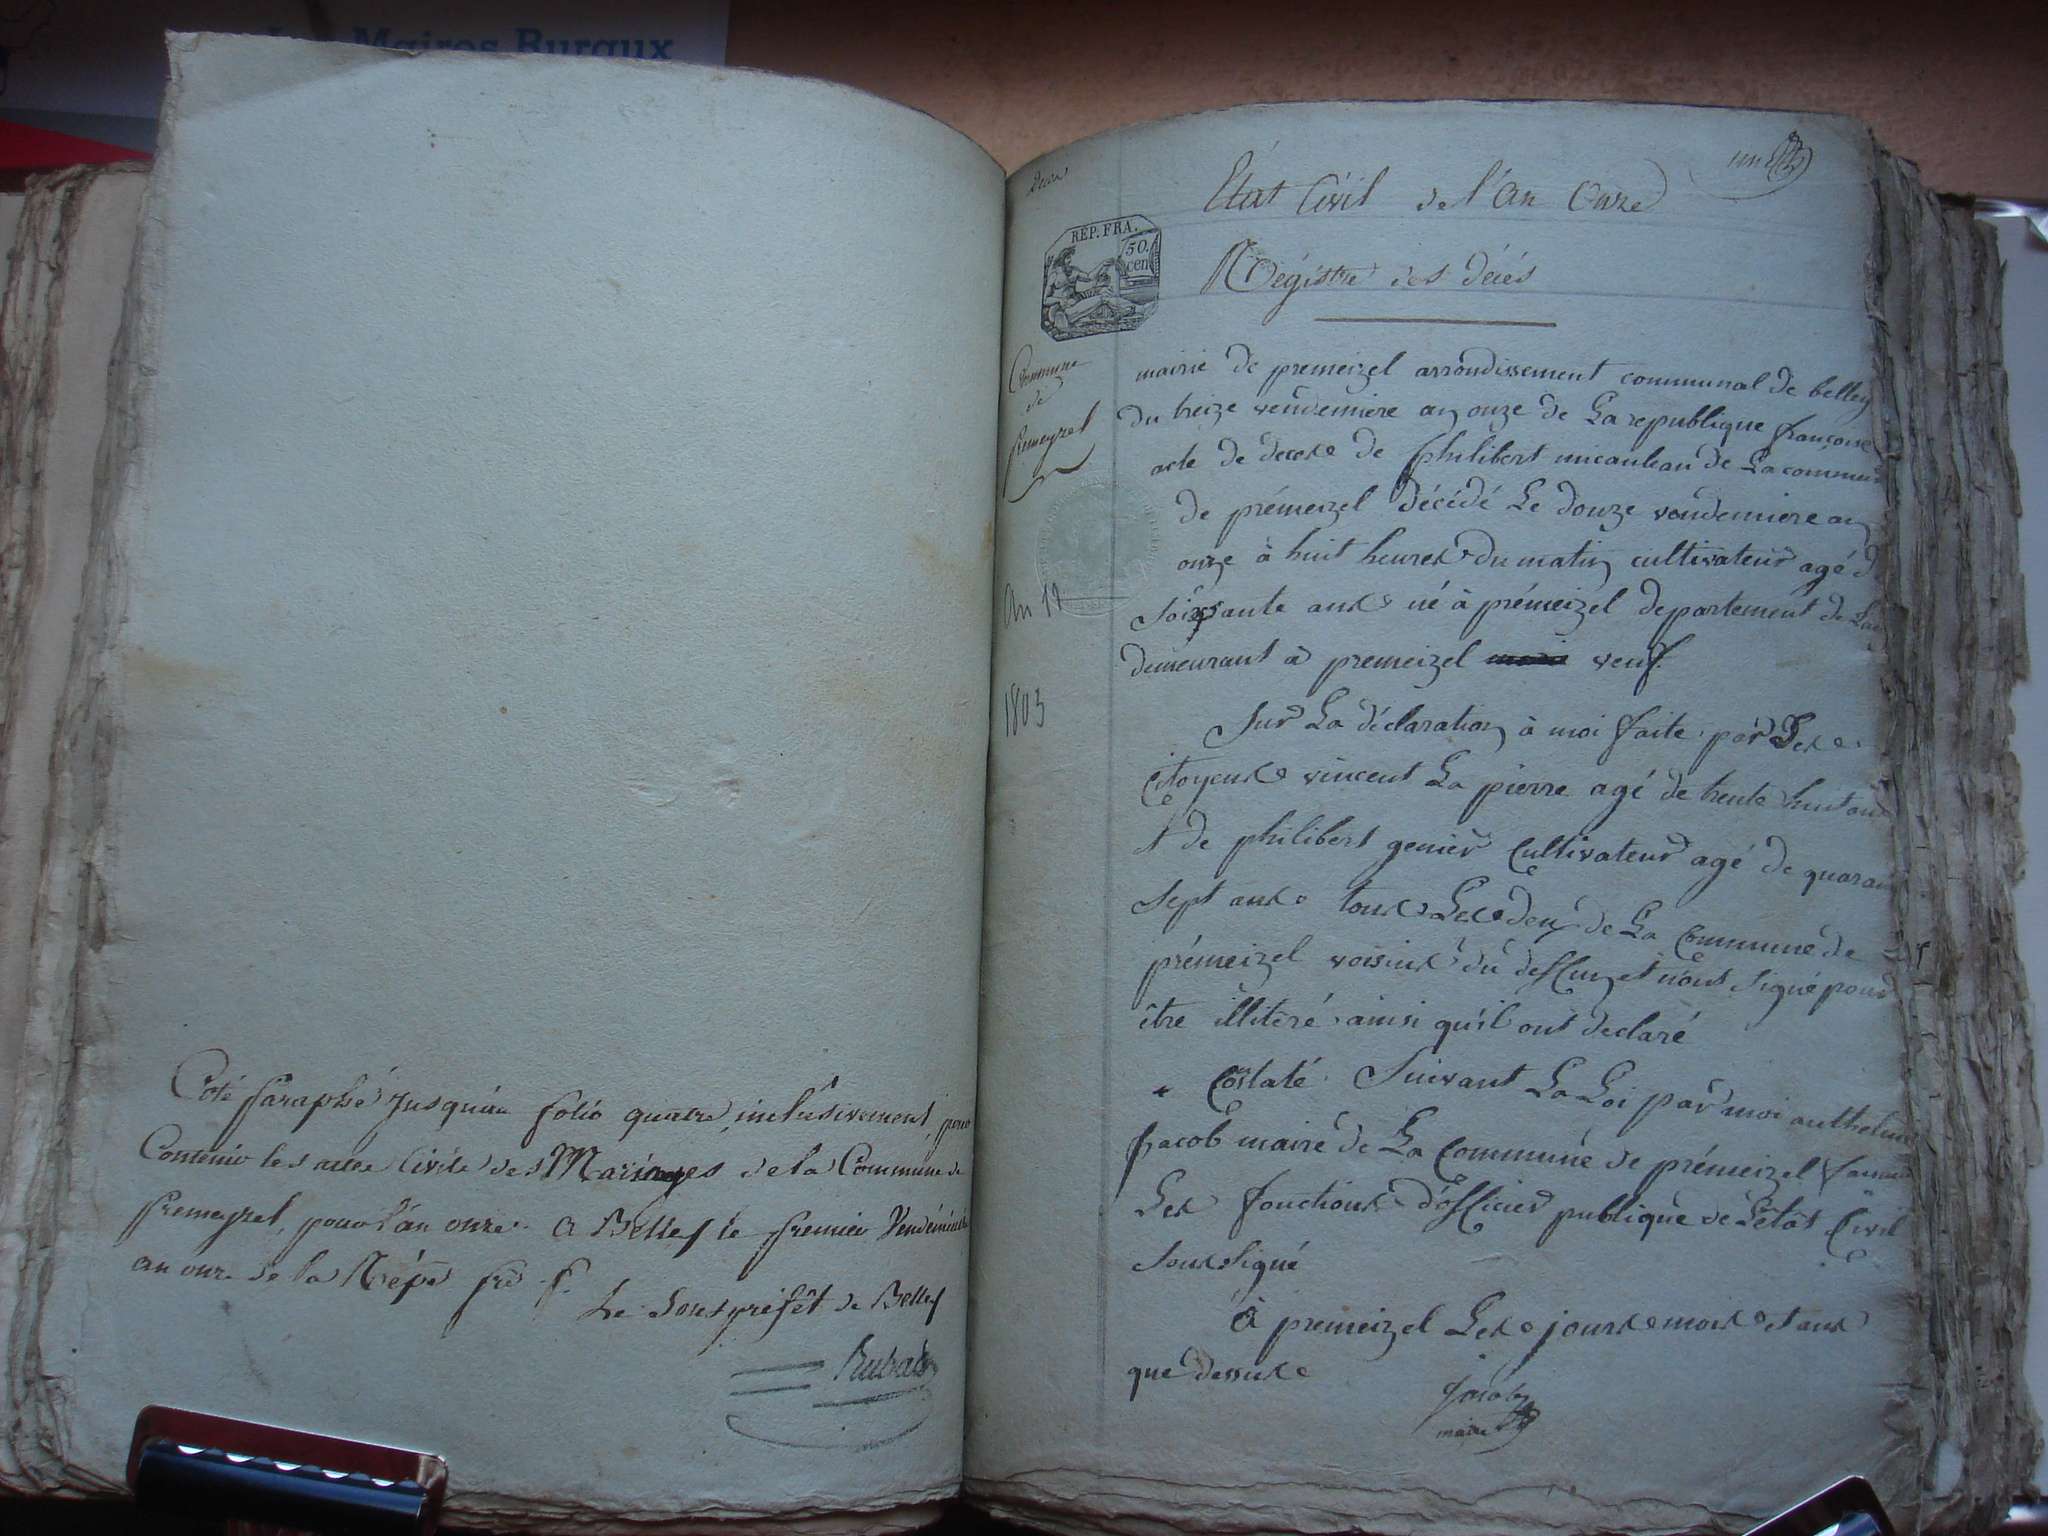 Les Maires Ruraux
Coté Paraphé jusqu'au folio quatre, inclusivement, pour
Contenir les actes Civils des Mariages de la Commune de
premeyzel, pour l'an onze. A Belley le premier Vendémiaire
an onze de la Rép. fre.
Le Souspréfêt de Belley
Rubat
Décès
un
État Civil de l'an Onze
Régistre des décès
REP. FRA.
50.
cen
Commune
de
Premeyzel
an 11
1803
mairie de premeizel arrondissement communal de belley
du treize vendemiere an onze de La republique françoise
acte de deces de philibert micauleau de La commune
de prémeizel décédé Le douze vendemiere an
onze à huit heures du matin cultivateur agé de
soixante ans né à prémeizel departement de Lain
demeurant à premeizel veuf
Sur La déclaration à moi faite par Les
Citoyens vincent La pierre agé de trente huit ans
et de philibert genier Cultivateur agé de quarante
sept ans tous Les deux de La Commune de
prémeizel voisins du deffun et n'ont signé pour
être illitéré ainsi qu'il ont declaré
Constaté Suivant La Loi par moi anthelme
jacob maire de La Commune de prémeizel faisant
Les fonctions d'officier publique de L'êtât Civil
soussigné
à premeizel Les jours mois et ans
que dessus
Jacob
maire